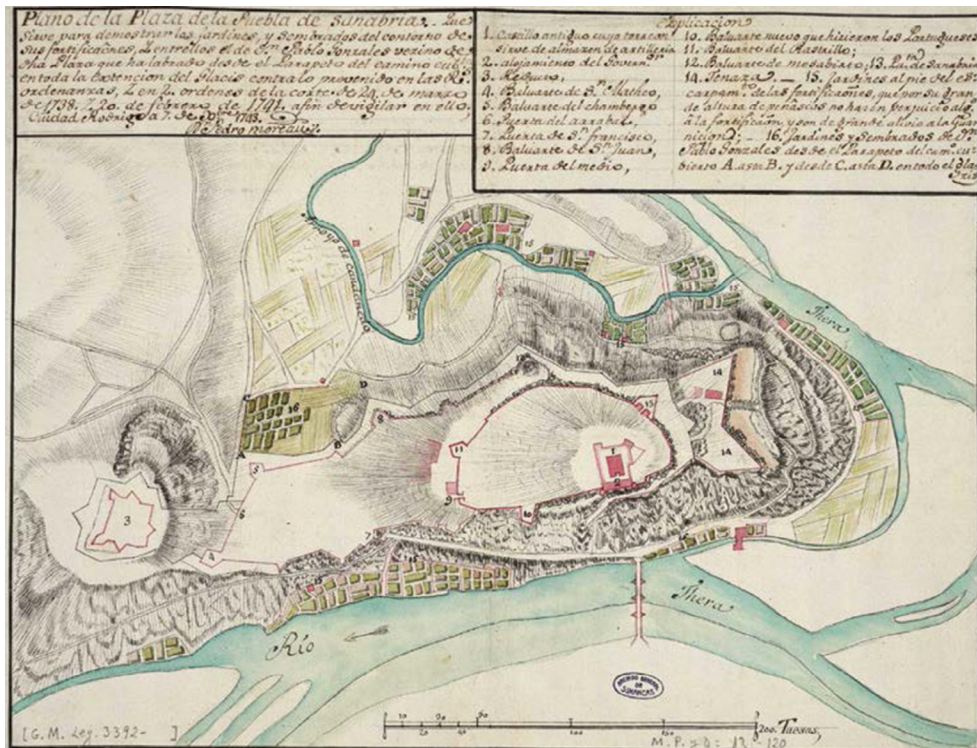 Plano de la Plaza de la Puebla de Sanabria, Que
sirve para demostrar los jardines, y sembrados del contorno de
sus fortificaciones, Y entre ellos el de Dn. Pablo Gonzales vezino de
dha Plaza que ha labrado desde el Parapeto del camino
en toda la extencion del Glacis contra lo prevenido en las Rs.
ordenanzas, Y en 2. ordenes de la corte de 24. de marzo
de 1738. Y 20. de febrero de 1741. afin de vigilar en ello.
Ciudad Rodrigo a 7. de 1743.
Dn Pedro moreau
Explicacion
1. Castillo antiguo cuyo torreon
sirve de almazen de artilleria
2. alojamiento del Govern.or
3. Reduto,
4. Baluarte de S.n Matheo,
5. Baluarte del chambergo
6. Puerta del arrabal,
7. Puerta de S.n francisco,
8. Baluarte de S.n Juan,
9. Puerta del medio,
10. Baluarte nuevo que hizieron los Portugueses
11. Baluarte del Rastrillo;
12. Baluarte de mosabixo; 13. de Sanabria
14. Tenaza. — 15. Jardines al pie del
de las fortificaciones, que por su gran
de altura de peñascos no hazen perjuicio alg.
a la fortificaz.n y son de grande alivio a la Guar
nicion; — 16. Jardines y Sembrados de Dn.
Pablo Gonzales desde el Parapeto del cam.o cu
bierto A. asta B. y desde C. asta D. en todo el Gla
cis
Arroyo de
15
15
Thera
12
14
13
C
D
16
8
A
B
11
1
2
14
5
9
10
3
6
7
4
15
Thera
Río
ARCHIVO GENERAL
DE
SIMANCAS
10
30
50
20
100
150
200. Tuesas,
[G. M. Leg. 3392- ]
M. P. y D: 120